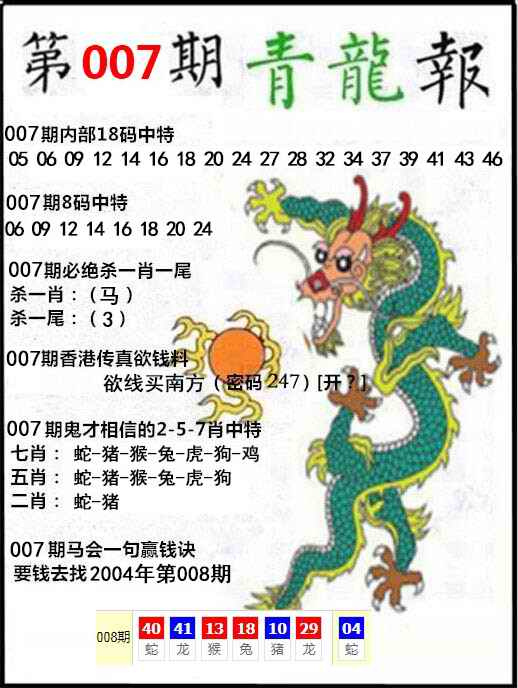 第007期青龍報
007期内部18码中特
05 06 09 12 14 16 18 20 24 27 28 32 34 37 39 41 43 46
007期8码中特
06 09 12 14 16 18 20 24
007期必绝杀一肖一尾
杀一肖：（马）
杀一尾：（3）
007期香港传真欲钱料
欲线买南方（密码247）[开？]
007期鬼才相信的2-5-7肖中特
七肖： 蛇-猪-猴-兔-虎-狗-鸡
五肖： 蛇-猪-猴-兔-虎-狗
二肖： 蛇-猪
007期马会一句赢钱诀
要钱去找2004年第008期
008期 40 41 13 18 10 29 04
蛇 龙 猴 兔 猪 龙 蛇